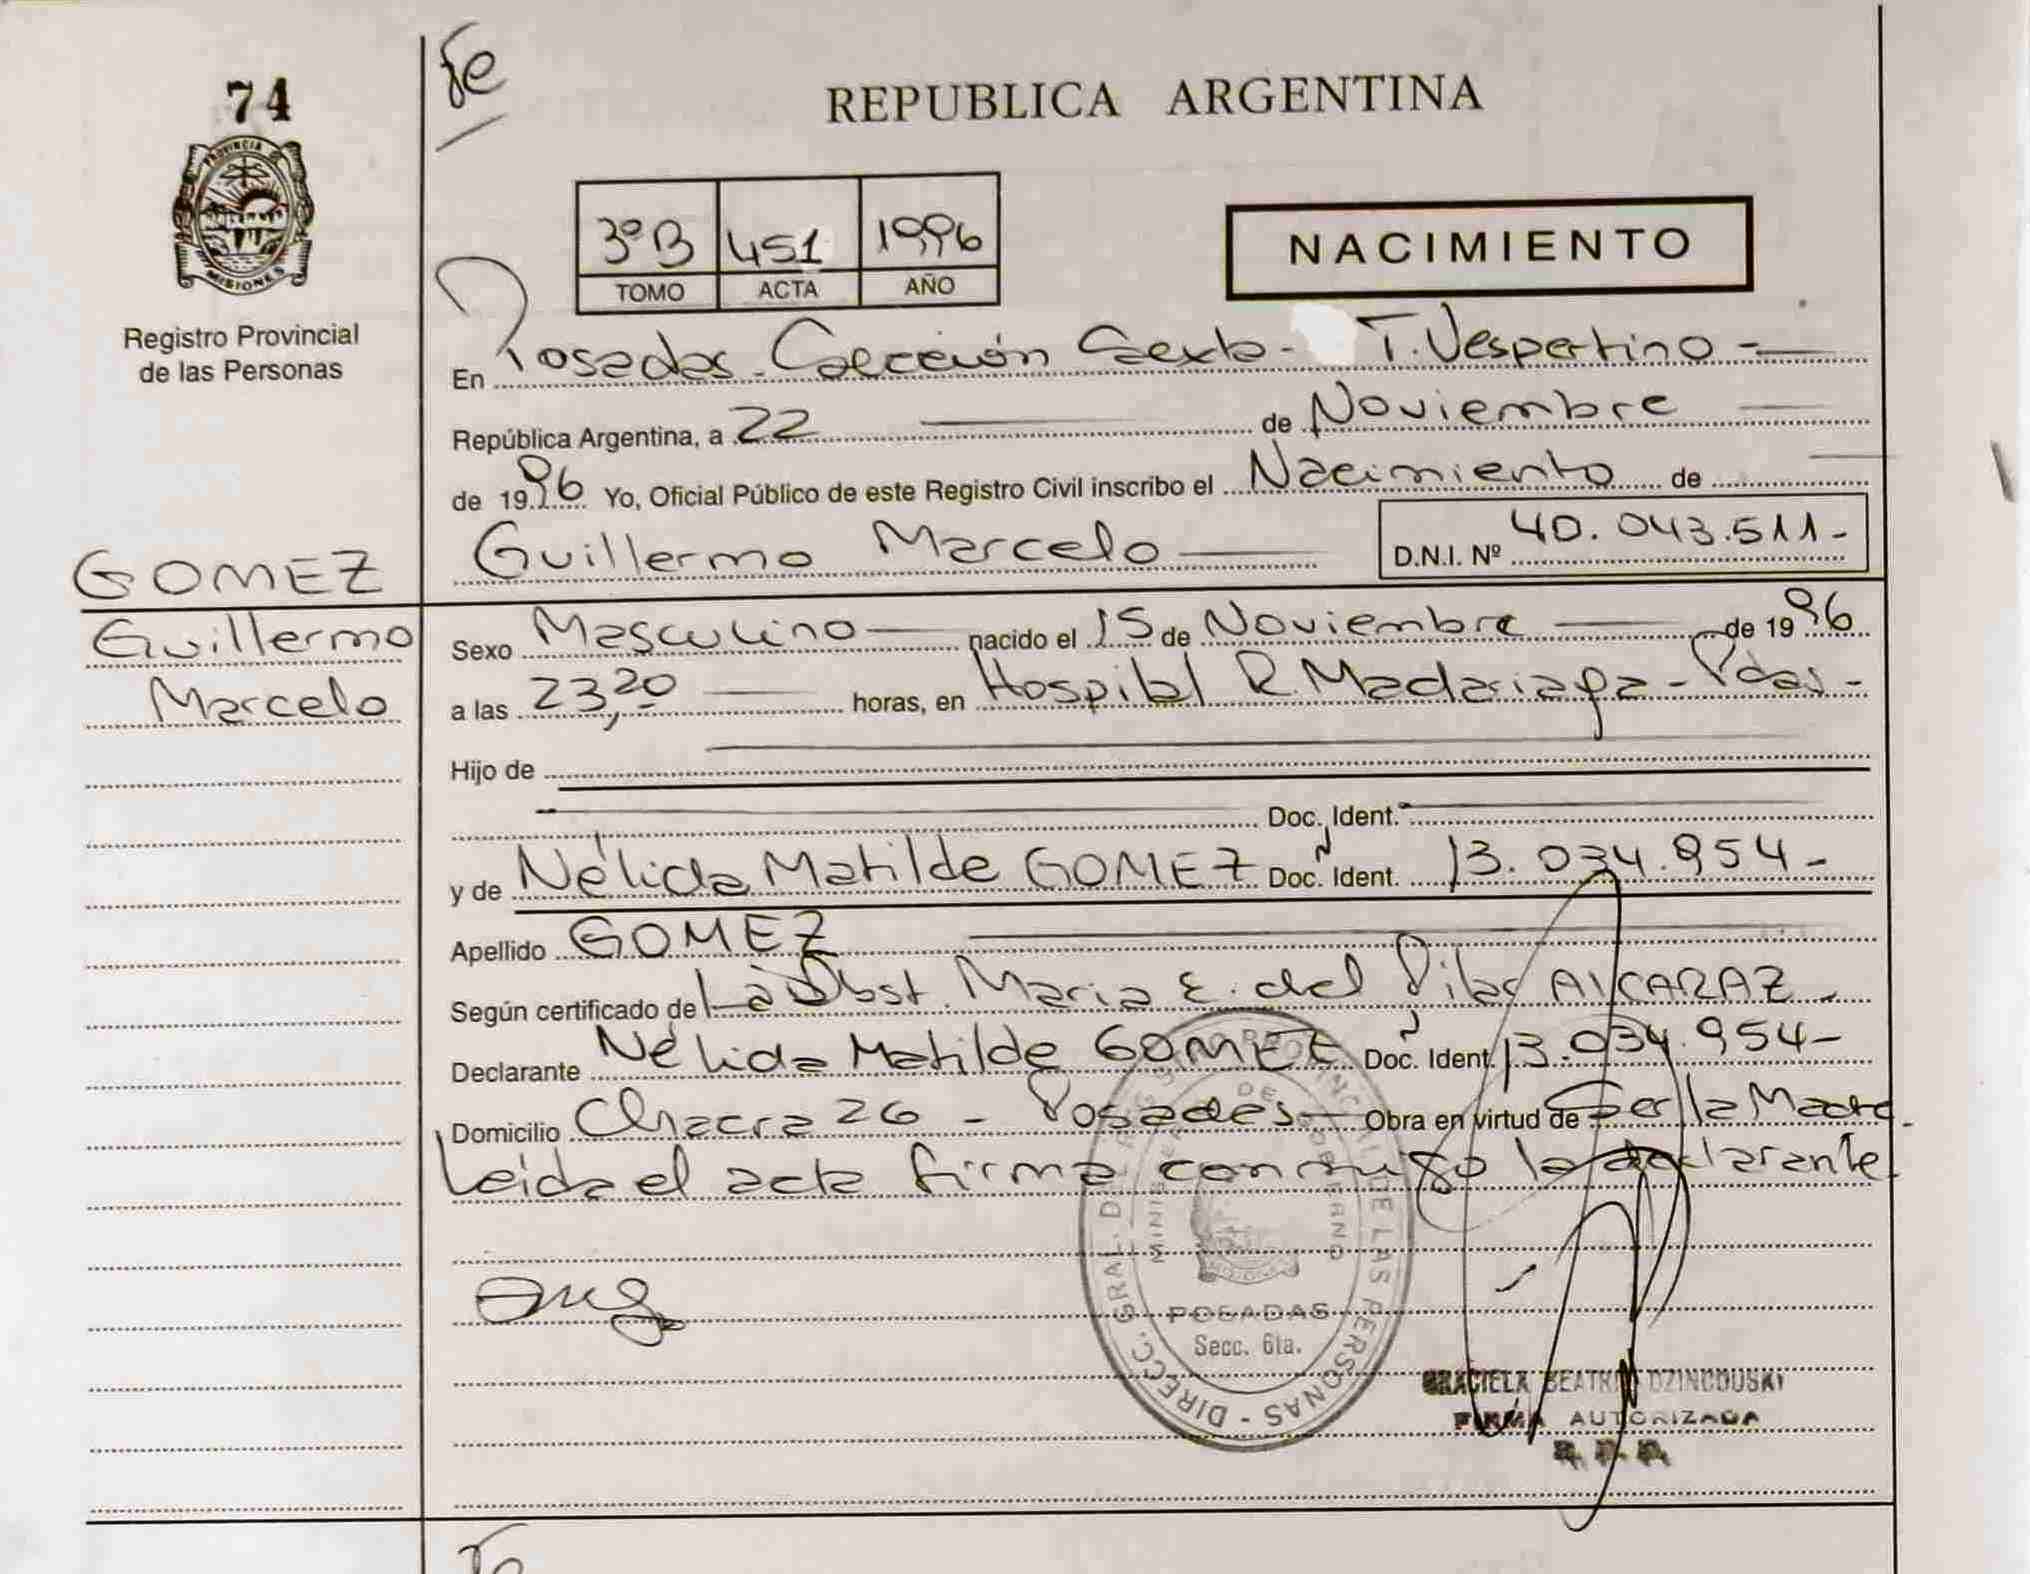 74
fe
REPUBLICA ARGENTINA
PROVINCIA DE
MISIONES
Registro Provincial
de las Personas
3º B 451 1996
TOMO ACTA AÑO
NACIMIENTO
En Posadas - Sección Sexta - T. Vespertino -
República Argentina, a 22 de Noviembre
de 1996 Yo, Oficial Público de este Registro Civil inscribo el Nacimiento de
Guillermo Marcelo D.N.I. Nº 40.043.511-
GOMEZ
Guillermo
Marcelo
Sexo Masculino nacido el 15 de Noviembre de 1996
a las 23,20 horas, en Hospital R. Madariaga - Pdas -
Hijo de
Doc. Ident.
y de Nélida Matilde GOMEZ Doc. Ident. 13.034.954-
Apellido GOMEZ
Según certificado de La Obst. Maria E. del Pilar ALCARAZ -
Declarante Nélida Matilde GOMEZ Doc. Ident. 13.034.954-
Domicilio Chacra 26 - Posadas - Obra en virtud de Ser lla Madre -
Leida el acta firma conmigo la declarante.
DIRECC. GRAL. DEL REG. PROVINCIAL DE LAS PERSONAS
MINISTERIO DE GOBIERNO
MISIONES
POSADAS
Secc. 6ta.
GRACIELA BEATRIZ DZINCOUSKI
FIRMA AUTORIZADA
R. P. P.